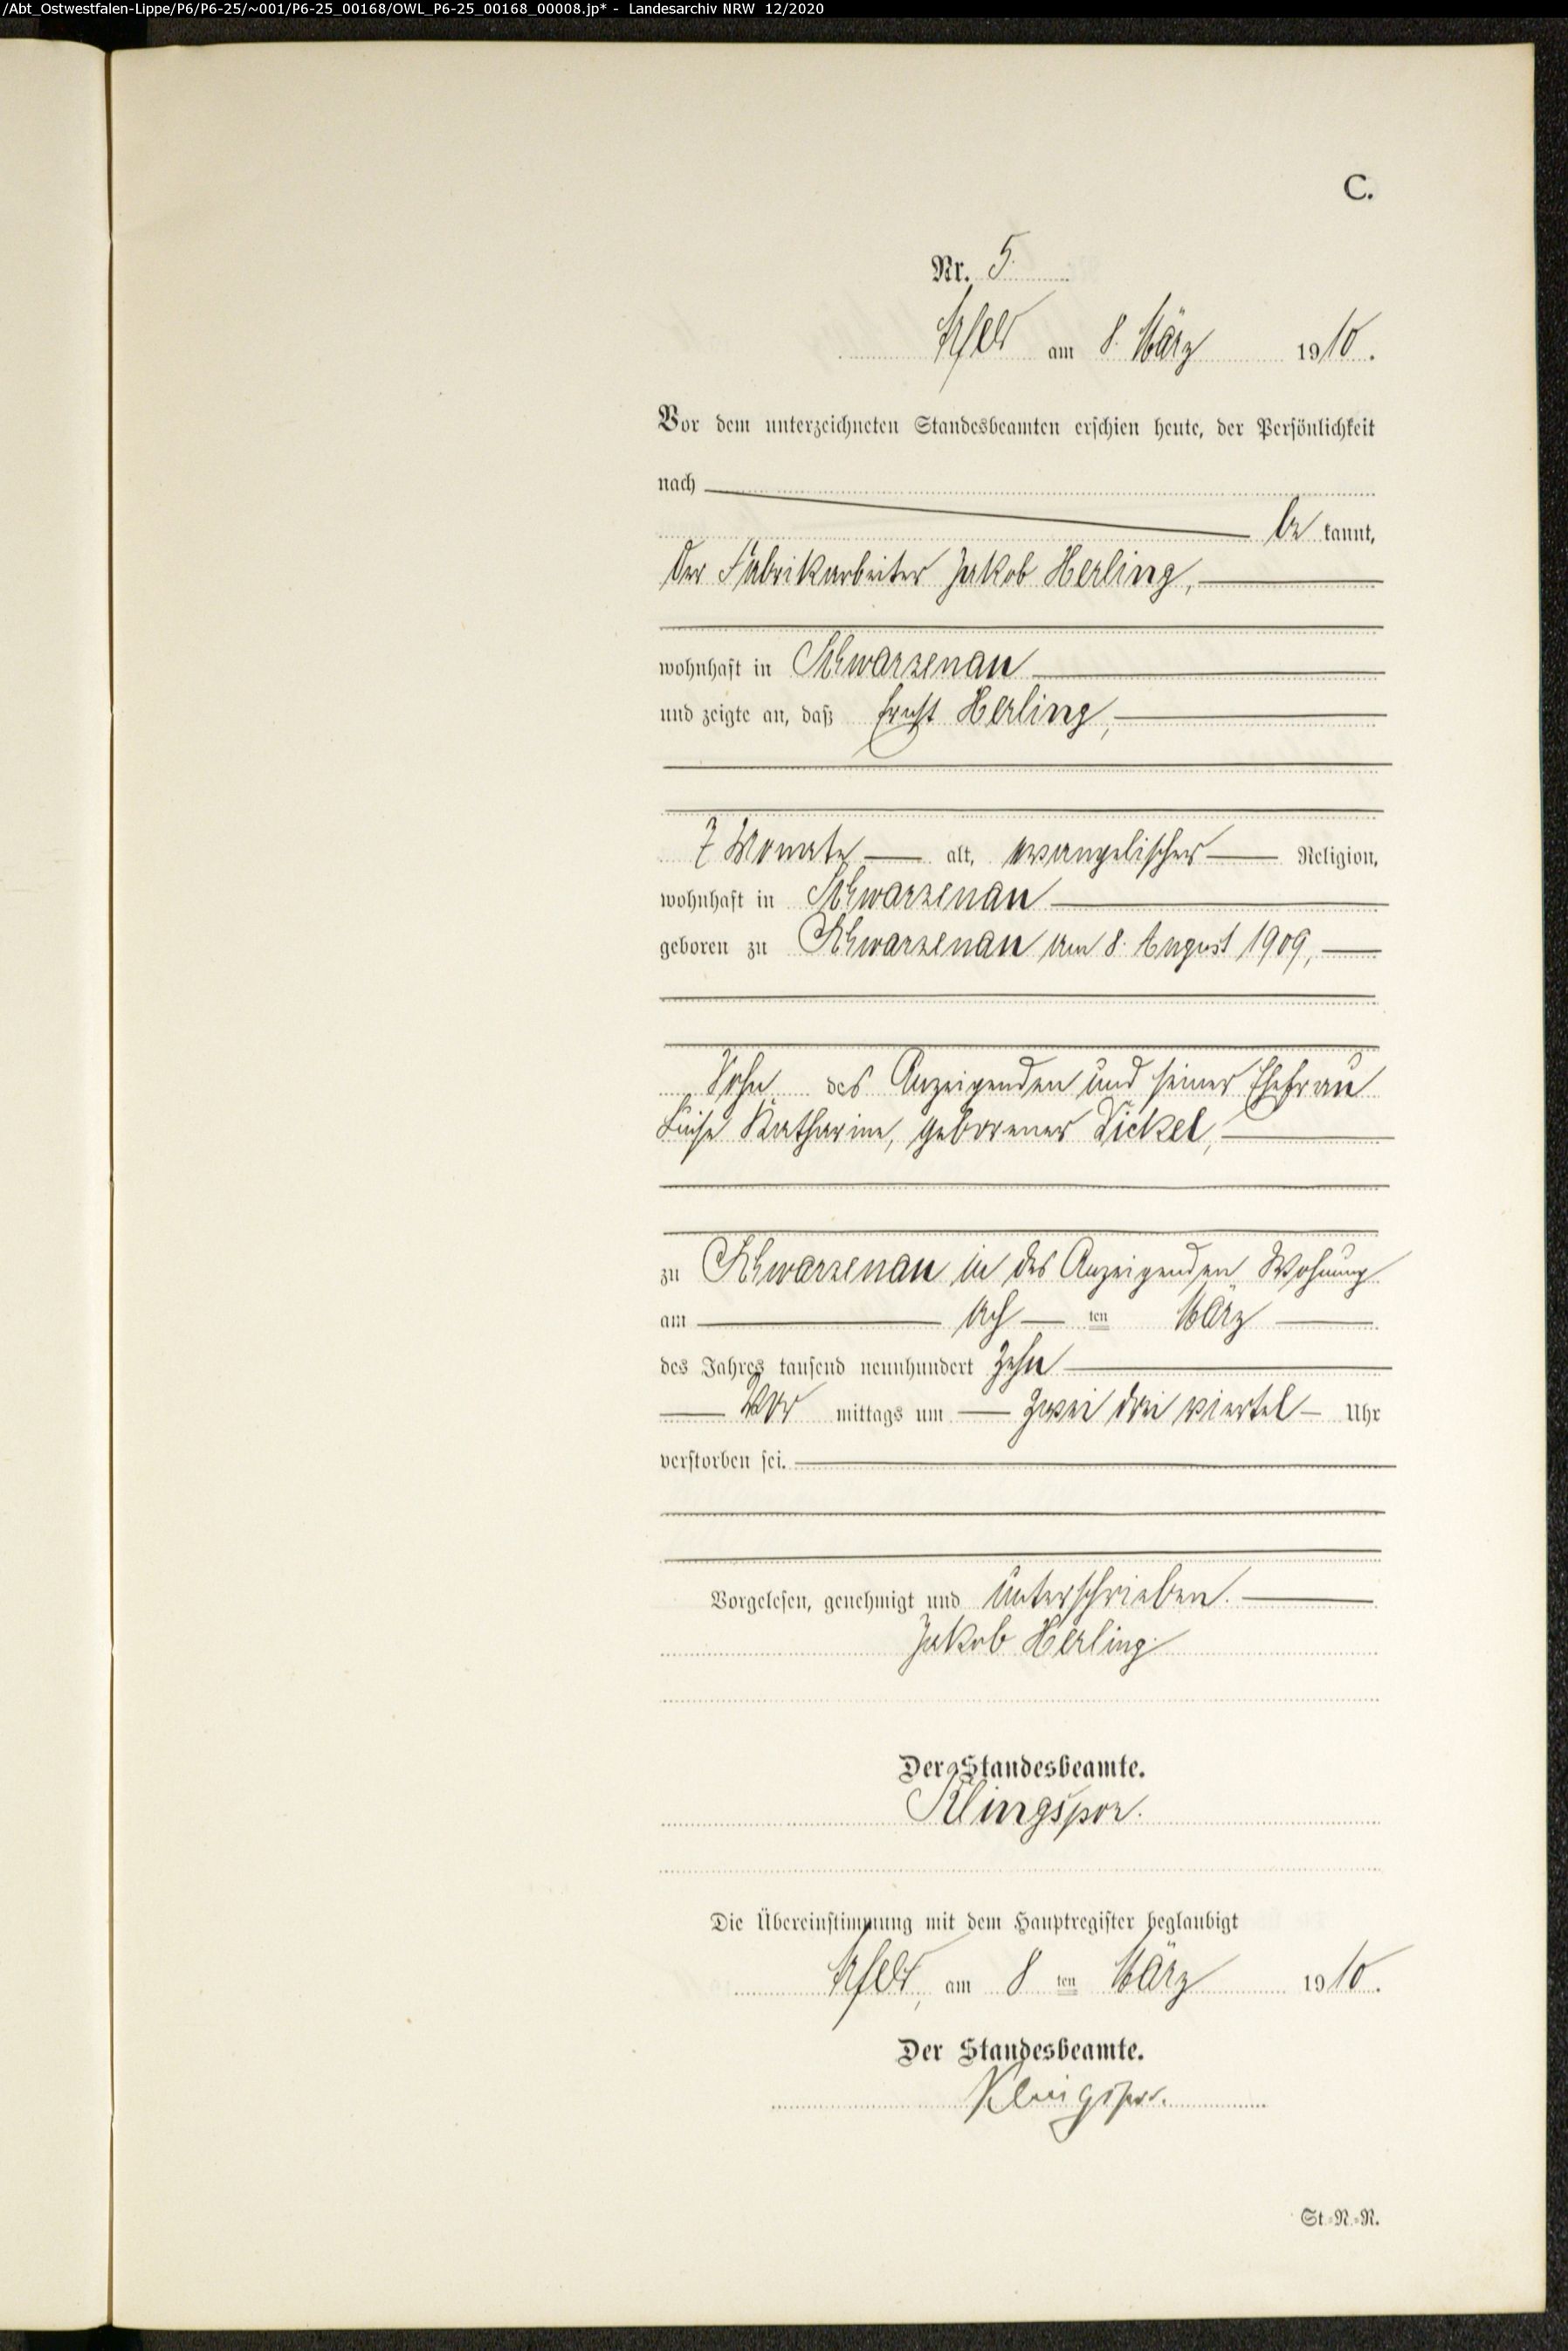 /Abt_Ostwestfalen-Lippe/P6/P6-25/~001/P6-25_00168/OWL_P6-25_00168_00008.jp* - Landesarchiv NRW 12/2020
C.
Nr. 5.
Arfeld am 8. März 1910.
Vor dem unterzeichneten Standesbeamten erschien heute, der Persönlichkeit
nach
be kannt,
der Fabrikarbeiter Jakob Herling,
wohnhaft in Schwarzenau
und zeigte an, daß Ernst Herling,
7 Monate alt, evangelischer Religion,
wohnhaft in Schwarzenau
geboren zu Schwarzenau am 8. August 1909,
Sohn des Anzeigenden und seiner Ehefrau
Luise Katharine, geborener Dickel,
zu Schwarzenau in des Anzeigenden Wohnung
am ach ten März
des Jahres tausend neunhundert zehn
Vor mittags um zwei drei viertel Uhr
verstorben sei.
Vorgelesen, genehmigt und unterschrieben.
Jakob Herling.
Der Standesbeamte.
Klingspor.
Die Übereinstimmung mit dem Hauptregister beglaubigt
Arfeld, am 8 ten März 1910.
Der Standesbeamte.
Klingspor.
St.-N.-R.